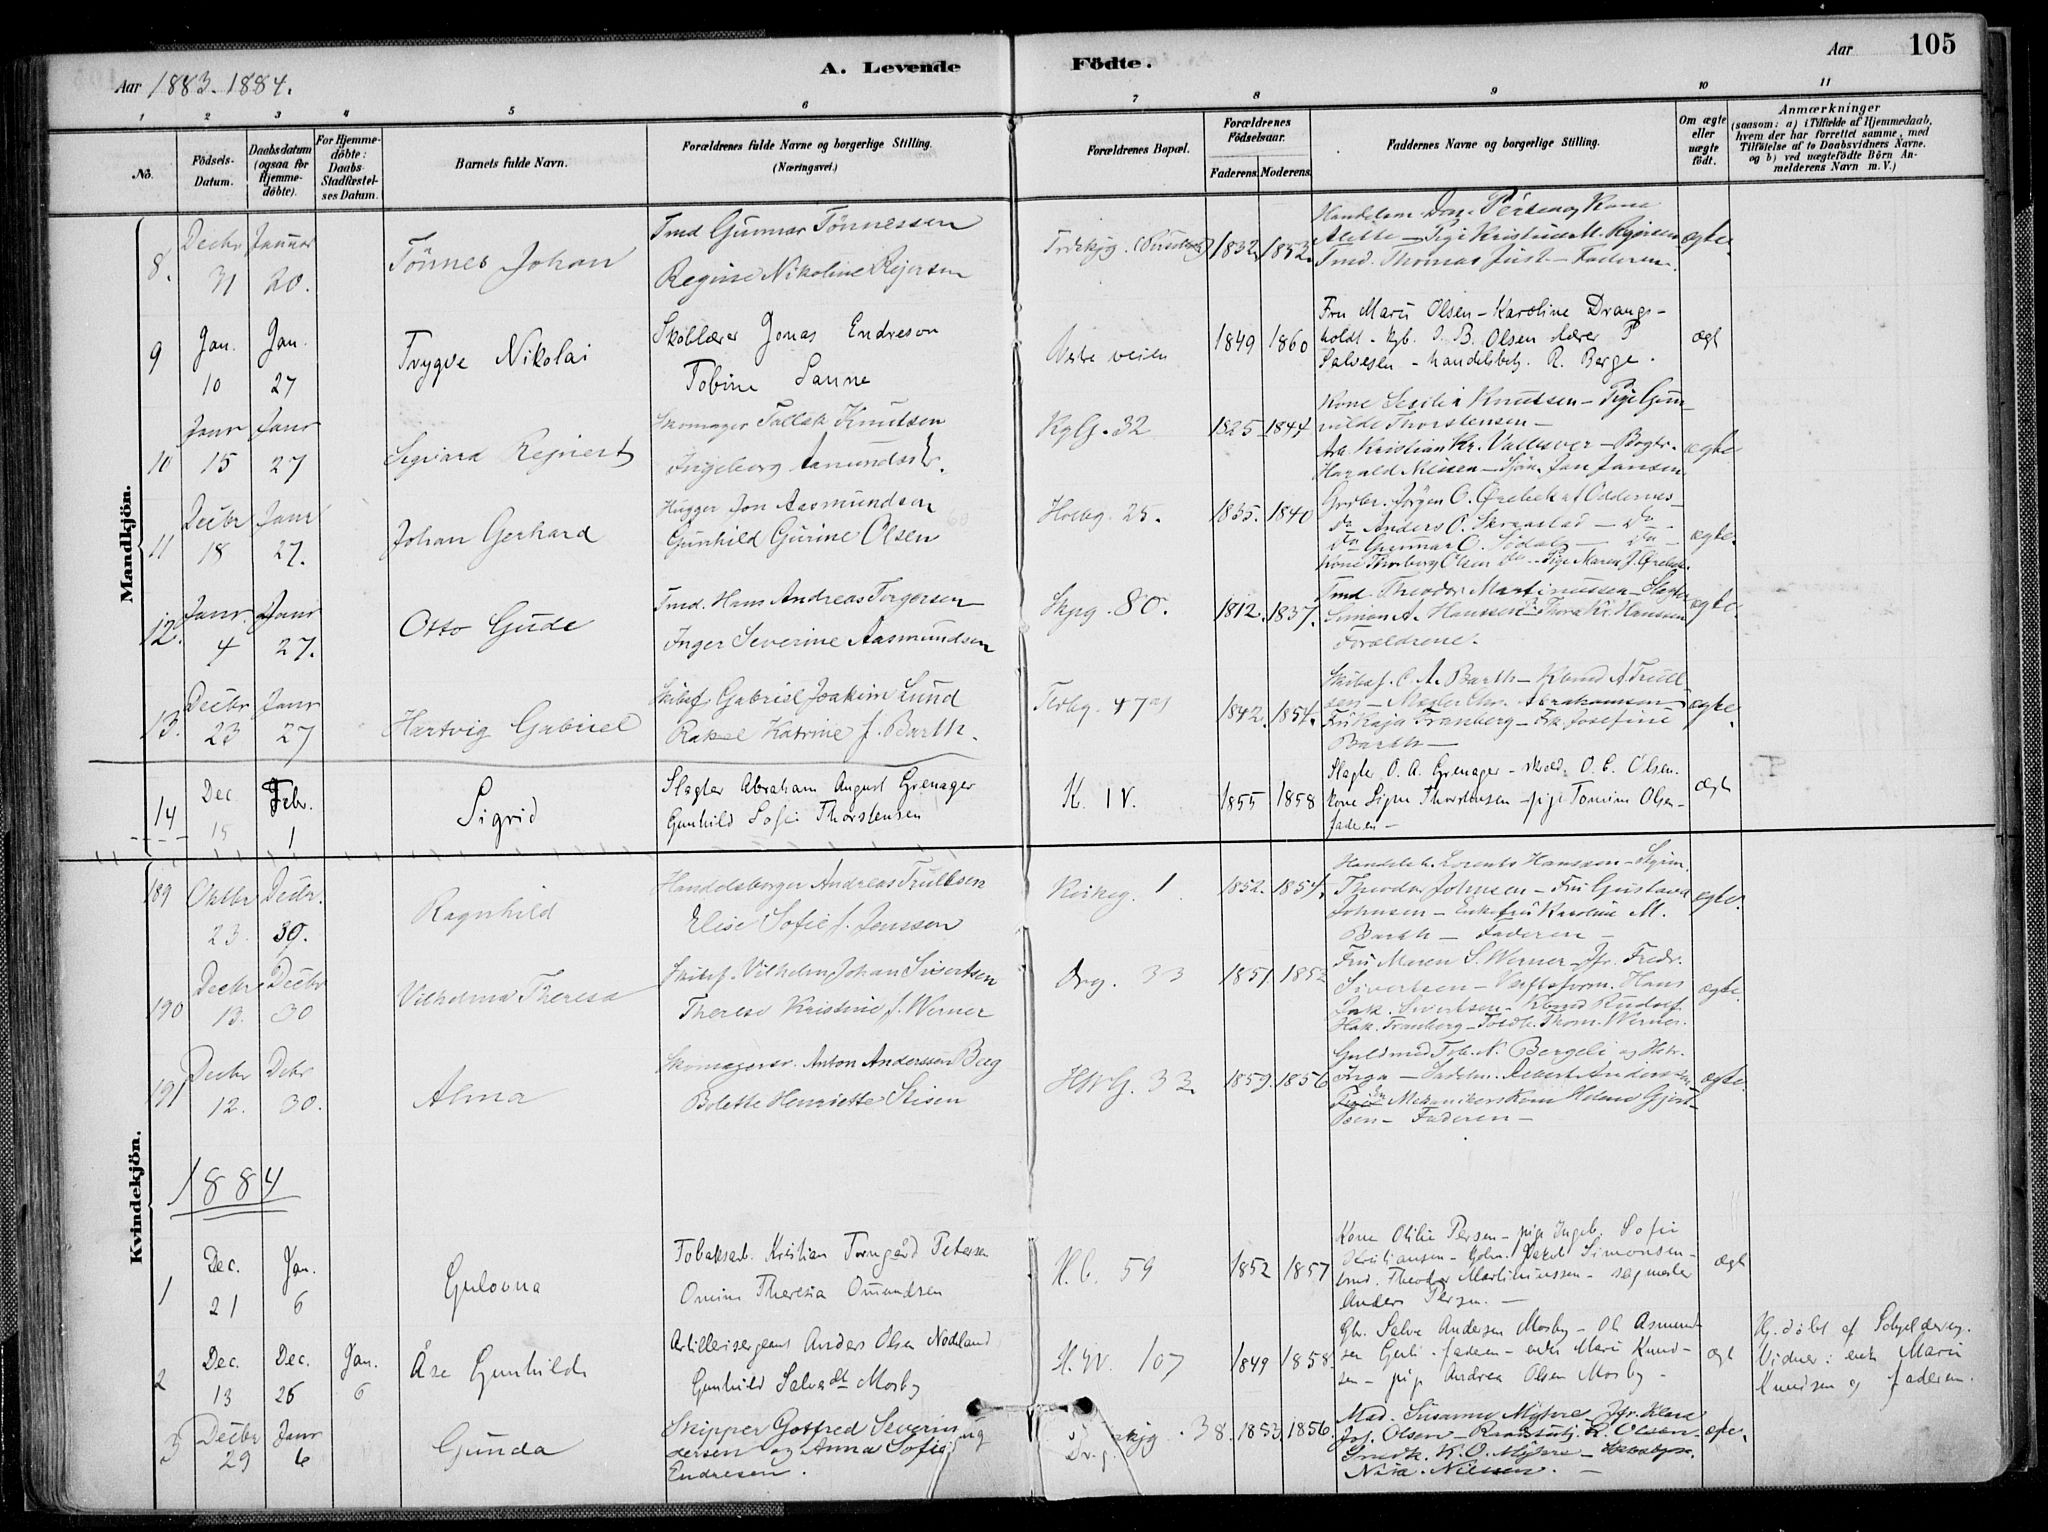 Aar 1883. 1884.
A. Levende
Födte.
Aar 105
1 2 3 4 5 6 7 8 9 10 11
No.
Födsels-Datum.
Daabsdatum (ogsaa for Hjemmedöbte).
For Hjemmedöbte: Daabs-Stadfæstelses Datum.
Barnets fulde Navn.
Forældrenes fulde Navne og borgerlige Stilling.
(Næringsvei.)
Forældrenes Bopæl.
Forældrenes Födselsaar.
Faderens. Moderens.
Faddernes Navne og borgerlige Stilling.
Om ægte eller uægte födt.
Anmærkninger
(saasom: a) i Tilfælde af Hjemmedaab, hvem der har forrettet samme, med Tilföielse af to Daabsvidners Navne. og b) ved uægtefödte Börn Anmelderens Navn m. V.)
Mandkjön.
8. Decbr 31 Januar 20.
Tönnes Johan
Tmd Gunnar Tönnessen
Regine Nikoline Rejersen
1832 1852.
Alette - Pige Kristine M. Rejersen
Tmd. Thomas Just - Faderen.
ægte.
9 Jan. 10 Jan. 27
Trygve Nikolai
Skollærer Jonas Endreson
Tobine Sanne
Vestre veien
1849 1860
Fru Marie Olsen - Karoline Drangs-
holdt - kjb. I. B. Olsen lærer P
Salvesen - handelsbetj. R. Berge.
ægt
10 Janr 15 Janr 27
Sigvard Rejnert
Skomager Tallak Knutsen
Ingeborg Amundsdtr.
Kg G. 32
1825 1844
Kone Sesilia Knutsen - Pige Gun-
nilde Thorstensen -
Arb. Kristian Kr. Vallesver - Bogtr.
Harald Nielsen - Sjöm. Jan Jansen
ægte
11 Decbr 18 Janr 27.
Johan Gerhard
Hugger Jon Aasmundsen
Gunhild Gurine Olsen
Holbg. 25.
1835. 1840
Grdbr. Jörgen O. Örebek af Oddernes -
do Anders O. Skraastad - do -
do Gunnar O. Södal - do -
Kone Thorborg Olsen do - Pige Maren J. Örebek.
ægte.
12. Janr. 4 Janr 27.
Otto Gude
Tmd. Hans Andreas Torgersen
Inger Severine Aasmundsen
Skpg. 80.
1812. 1837.
Tmd Theodor Martinussen - Slagter
Simon A. Hanssen - Thora Kr. Hanssen
Forældrene.
ægte.
13. Decbr 23 Janr 27
Hartvig Gabriel
Skibsf Gabriel Joakim Lund
Rakel Katrine f. Barth.
1842. 1854.
Skibsf. C. A. Barth - Kbmd A. Trull-
sen - Mægler Chr. Abrahamsen -
Fru Kaja Tranberg - Frk. Josefine
Barth -
ægte.
14 Dec 15 Febr. 1
Sigrid
Slagter Abraham August Grenager
Gunhild Sofie Thorstensen
K. IV.
1855 1858
Slagter O. A. Grenager - O. C. Olsen.
kone Signe Thorstensen - pige Tomine Olsen -
faderen -
ægt
Kvindekjön.
189 Oktbr 23. Decbr. 30.
Ragnhild
Handelsborger Andreas Trullsen
Elise Sofie f. Jenssen
Kirkeg. 1.
1852. 1854.
Handelsb. Lorents Hanssen - Styrm.
Theodor Johnsen - Fru Gustava
Johnsen - Enkefru Karoline M.
Barth - Faderen -
ægte.
190 Decbr 13. Decbr 30
Vilhelma Theresa
Skibsf. Vilhelm Johan Sivertsen
Therese Kristine f. Werner
Drg. 33
1851 1852
Fru Maren S. Werner - Jfr. Fredr.
Sivertsen - Verftsform. Hans
Jak. Sivertsen - Kbmd Rudolf
Hak. Tranberg - Toldb. Thom. Werner.
ægte.
191 Decbr 12. Debr 30.
Alma
Skomagersv. Anton Anderssen Berg
Bolette Henriette Stisen
H W G. 33
1859. 1856
Guldsmed Tob. N. Bergeli og Hstr.
Inga - Sadelm. Albert Andersen
Mekanikers Kone Helene Gjert-
sen - Faderen -
ægte.
1884
1 Dec. 21 Jan. 6
Gulovna
Tobaksarb. Kristian Torngård Petersen
Omine Theresia Omundsen
H. C. 59
1852 1857
Kone Otilie Persen - pige Ingeb. Sofie
Kristiansen - Jakob Simonsen -
tmd. Theodor Martinussen - sagmester
Anders Persen. -
ægt
2 Dec. 13 Dec. 26 Jan. 6
Åse Gunhild
Artillerisergeant Anders Olsen Nödland
Gunhild Salvesdt Mosby
H. W. 107
1849 1858.
Gbr. Salve Andersen Mosby - Ol. Asmund-
sen Gerli - faderen - enke Marie Knud-
sen - pige Andrea Olsen Mosby -
ægt
Hj. döbt af Schjelderup.
Vidner: enke Marie
Knudsen og faderen.
3 Decbr 29 Janr 6
Gunda
Skipper Gotfred Severin
dersen og Anna Sofie
Endresen.
38. 1853. 1856.
Mad. Susanne Myhre - Jfr. Klara
Jos. Olsen - K. Olsen.
Smedk. K. O. Myhre -
Nielsen. -
ægte.